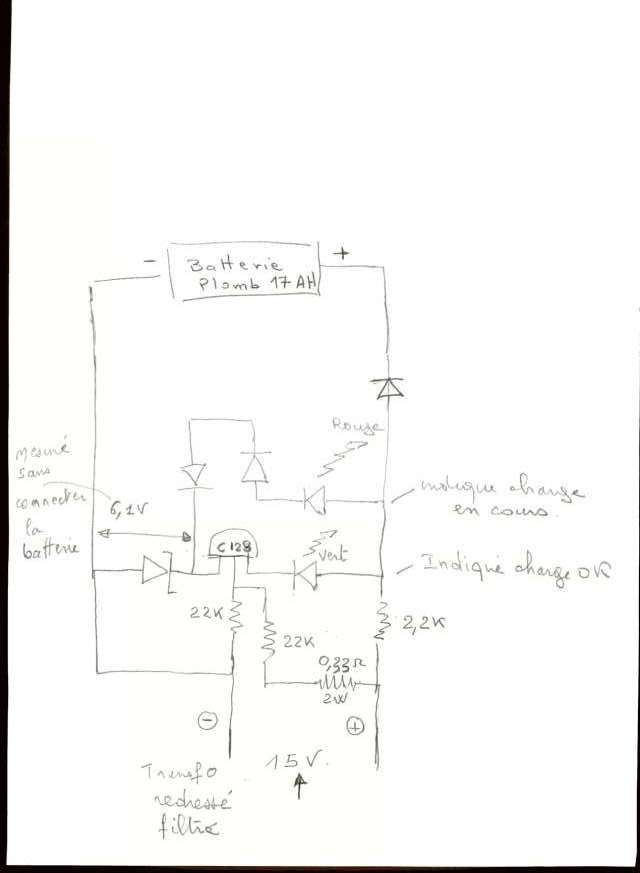 − +
Batterie
Plomb 17 AH
Rouge
Mesuré
sans
connecter
la
batterie
6,1V
indique charge
en cours.
C128
Vert
Indique charge OK
22K
22K
2,2K
0,33Ω
2W
−
+
15V.
Transfo
redressé
filtré